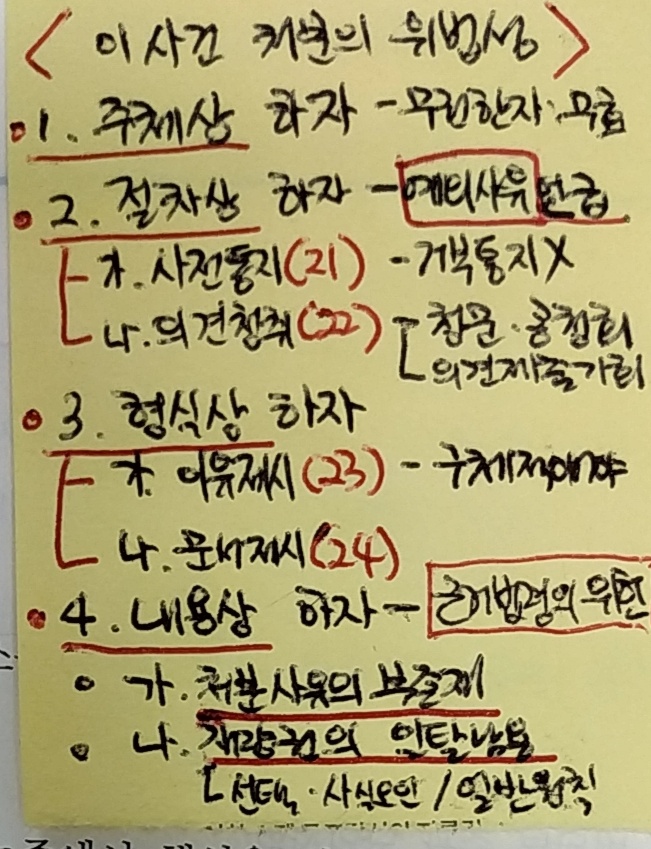 < 이 사건 처분의 위법성 >
1. 주체상 하자 - 무권한자·무효
2. 절차상 하자 - 예외사유 언급
가. 사전통지(21) - 거부통지X
나. 의견청취(22) - 청문·공청회
의견제출기회
3. 형식상 하자
가. 이유제시(23) - 구체적이어야
나. 문서제시(24)
4. 내용상 하자 - 근거법령의 위헌
가. 처분사유의 부존재
나. 재량권의 일탈남용
선택·사실오인 / 일반원칙